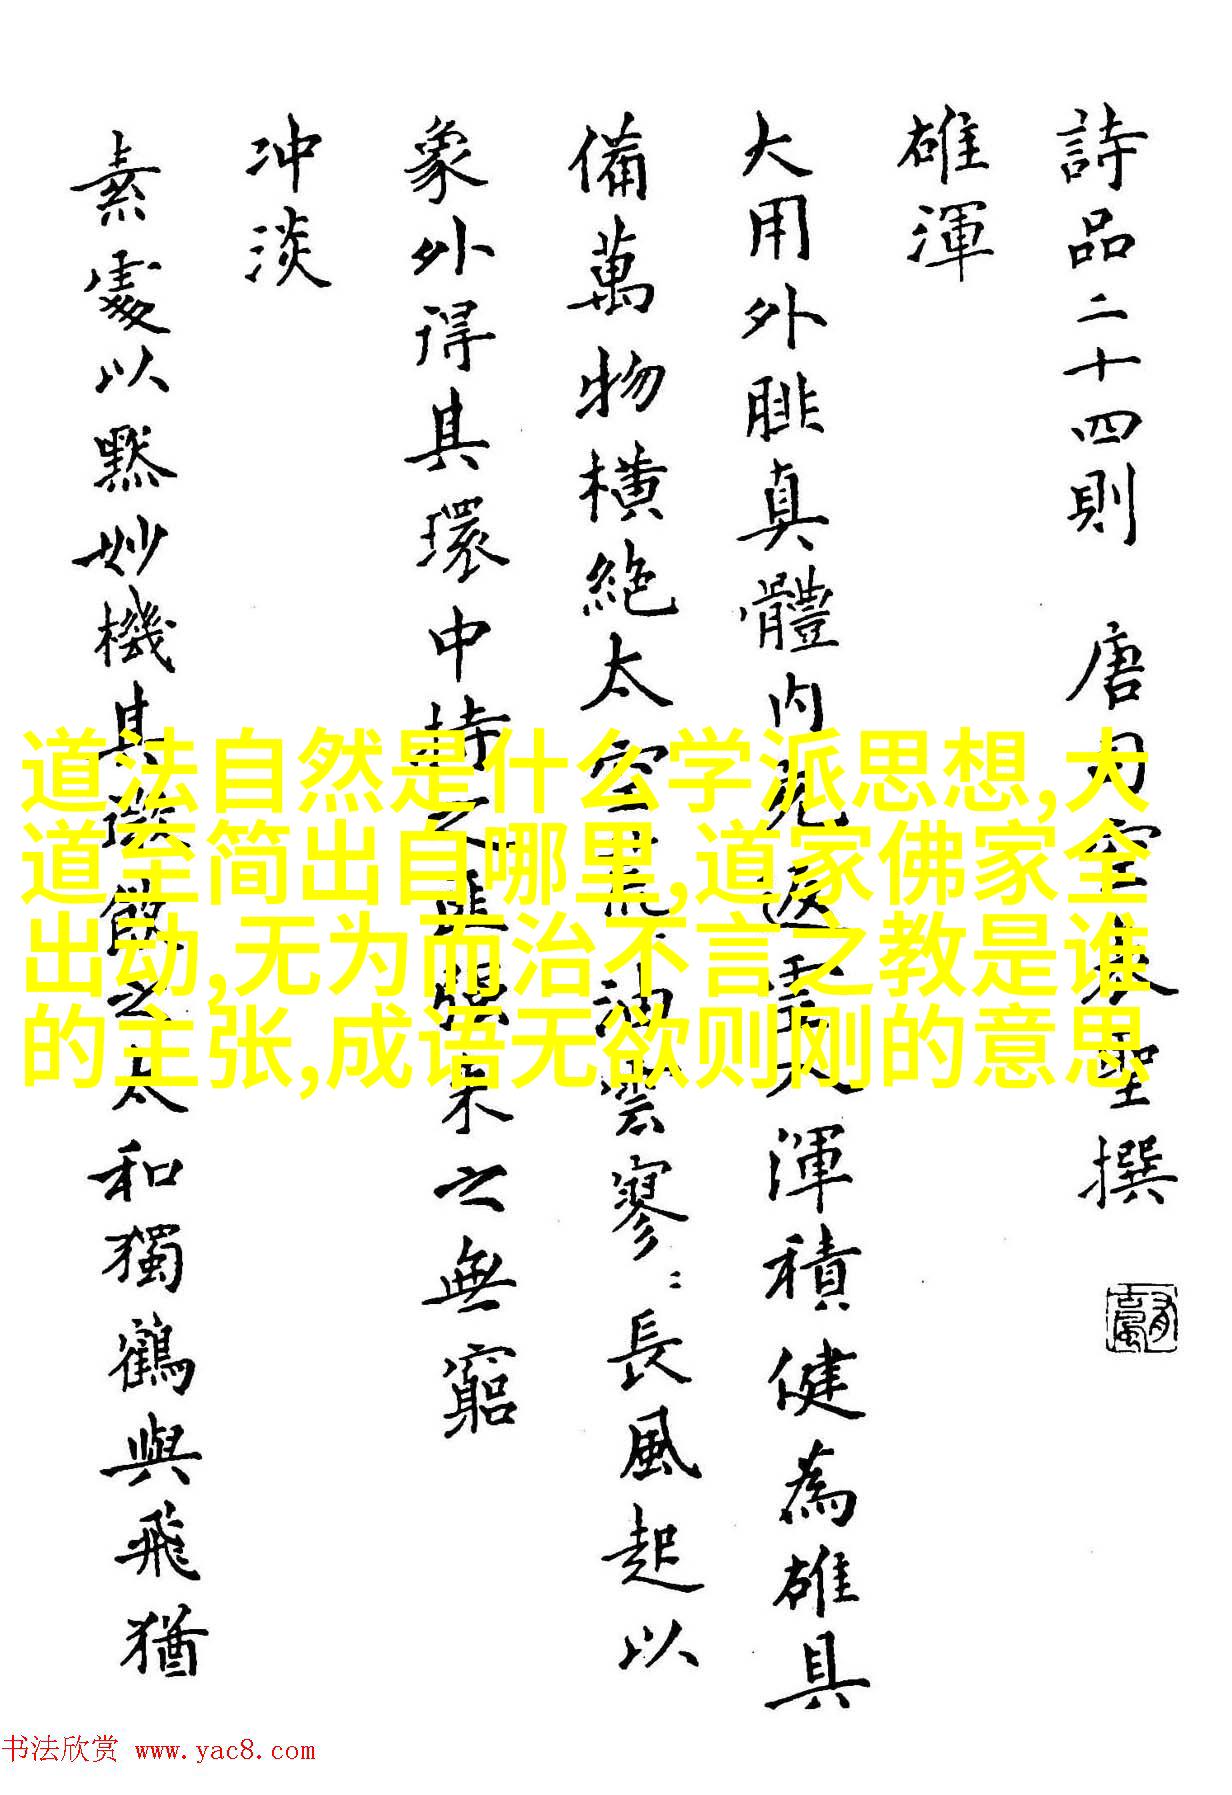 詩品二十四則 唐司空表聖撰
雄渾
大用外腓真體內充返虛入渾積健為雄具
備萬物橫絕太空荒荒油雲寥〻長風起以
象外得其環中持之匪強來之無窮
冲淡
素處以默妙機其微飲之太和獨鶴與飛猶
道法自然是什么学派思想,大
道至简出自哪里,道家佛家全
出动,无为而治不言之教是谁
的主张,成语无欲则刚的意思
书法欣赏 www.yac8.com